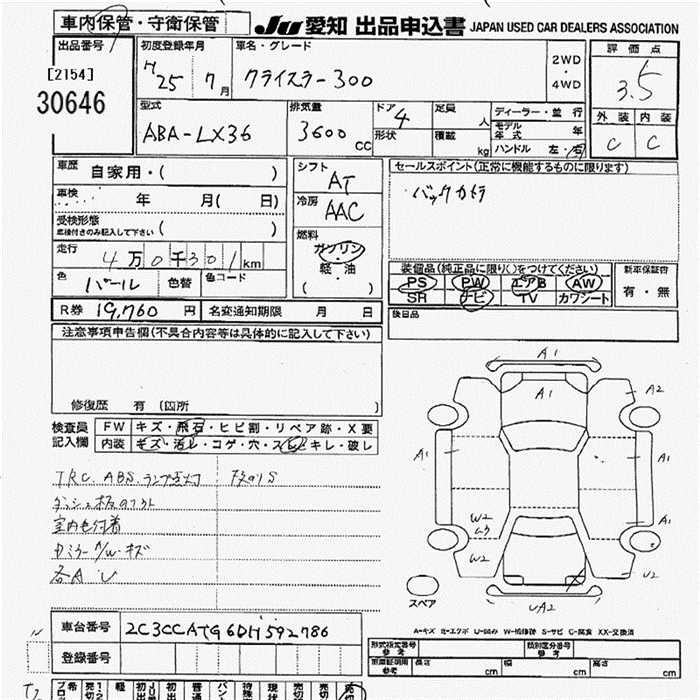 車内保管・守衛保管 JU 愛知 出品申込書 JAPAN USED CAR DEALERS ASSOCIATION
出品番号
[2154]
30646
初度登録年月
H25 7月
車名・グレード
クライスラー300
2WD
・
4WD
評価点
3.5
外装 内装
C C
型式
ABA-LX36
排気量
3600 CC
ドア 4
形状
定員 人
積載 kg
ディーラー・並行
モデル年式 年
ハンドル 左・右
車歴 自家用・( )
車検 年 月( 日)
受検形態
車検付きのみ記入して下さい ( )
走行 4万0千301km
色 パール 色替 色コード
シフト
AT
冷房
AAC
燃料
ガソリン
・
軽・油
( )
セールスポイント(正常に機能するものに限ります)
バックカメラ
装備品(純正品に限り○をつけてください)
PS PW エアB AW
SR ナビ TV カワシート
新車保証書
有・無
後日品
R券 19,760円 名変通知期限 月 日
注意事項申告欄(不具合内容等は具体的に記入して下さい)
修復歴 有(箇所 )
検査員記入欄
FW キズ・飛石・ヒビ割・リペア跡・X要
内装 キズ・汚レ・コゲ・穴・スレ・キレ・破レ
TRC, ABS, ランプ点灯
室内色付着
各A U
A1
A1
A2
A1
A1
W2
W2
U2
UA2
スペア
A-キズ E-エクボ U-凹み W-補修跡 S-サビ C-腐食 XX-交換済
車台番号 2C3CCATG6DH592786
登録番号
型式指定番号 参考
類別区分番号 参考
車庫証明用 参考 長さ cm 幅 cm 高さ cm